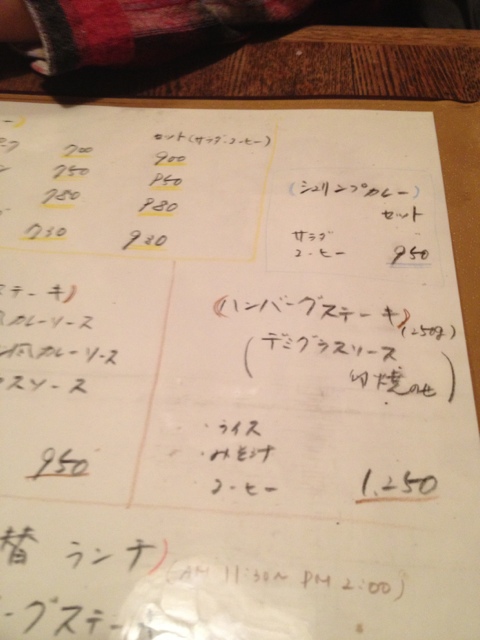 ー)
セット(サラダ・コーヒー)
700 900
750 950
780 980
730 930
(シュリンプカレー)
セット
サラダ
コーヒー 950
テーキ)
カレーソース
風カレーソース
スソース
950
(ハンバーグステーキ)(250g)
(デミグラスソース
目焼のせ)
・ライス
・みそ汁
コーヒー 1,250
替 ランチ)
(AM 11:30~ PM 2:00)
バーグステーキ